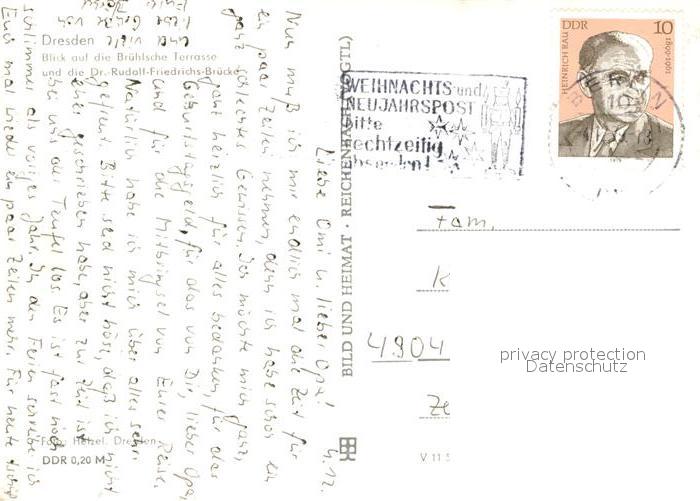 Dresden
Blick auf die Brühlsche Terrasse
und die Dr.-Rudolf-Friedrichs-Brücke
Foto: Hetzel, Dresden
DDR 0,20 M
BILD UND HEIMAT · REICHENBACH (VOGTL)
V 11 5
WEIHNACHTS und
NEUJAHRSPOST
bitte
rechtzeitig
absenden!
DDR 10
HEINRICH RAU 1899-1961
BERLIN
Fam.
K
4904
Ze
privacy protection
Datenschutz
4.12.
Liebe Omi u. lieber Opa!
Nun muß ich mir endlich mal die Zeit für
ein paar Zeilen nehmen, denn ich habe schon ein
ganz schlechtes Gewissen. Ich möchte mich ganz,
ganz herzlich für alles bedanken, für das
Geburtstagsgeld, für das von Dir, lieber Opa,
und für die Mitbringsel von Eurer Reise.
Natürlich habe ich mich über alles sehr
gefreut. Bitte seid nicht böse, daß ich nicht
eher geschrieben habe, aber zur Zeit ist
bei uns der Teufel los. Es ist fast noch
schlimmer als voriges Jahr. In den Ferien schreibe ich
Euch mal wieder ein paar Zeilen mehr. Für heute
und viele
liebe Grüße von
Eurer